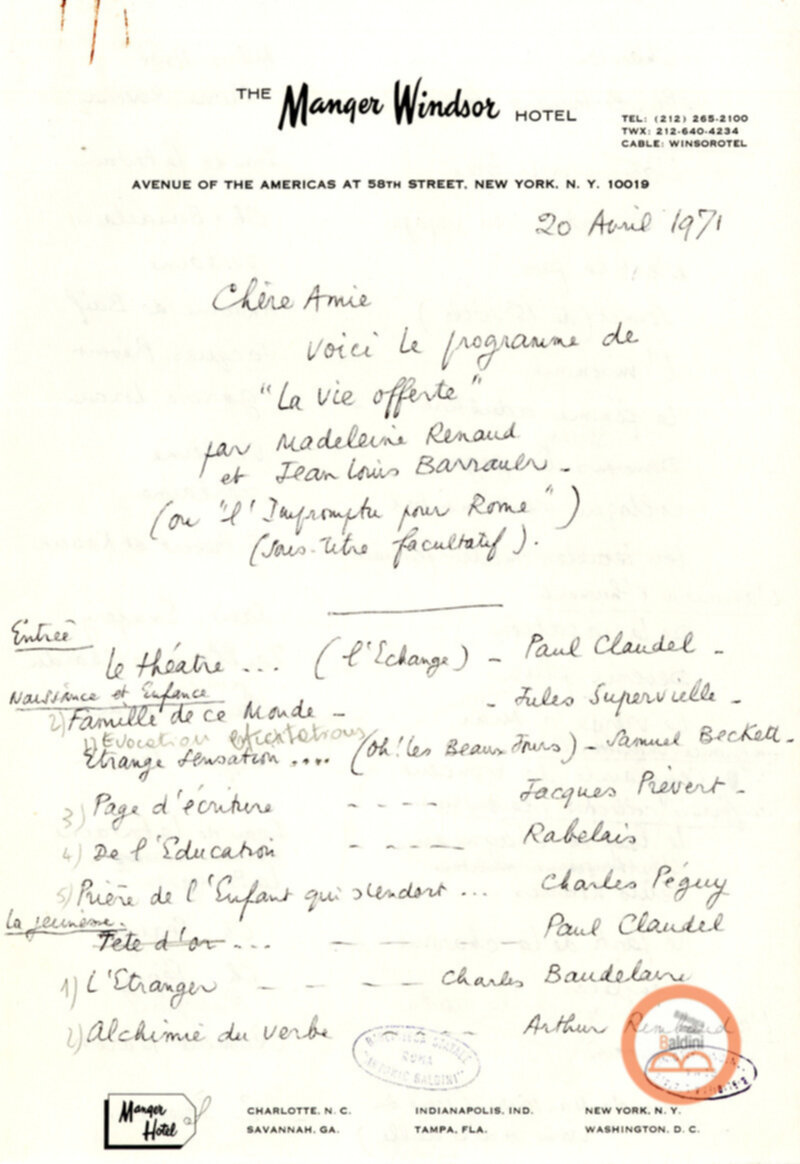 THE Manger Windsor HOTEL
TEL: (212) 265-2100
TWX: 212-640-4234
CABLE: WINSOROTEL
AVENUE OF THE AMERICAS AT 58TH STREET, NEW YORK, N. Y. 10019
20 Avril 1971
Chère Amie
Voici le programme de
"La vie offerte"
par Madeleine Renaud
et Jean Louis Barrault -
(ou "l'Impromptu pour Rome")
(sous-titre facultatif).
Entrée
le théâtre ... (l'Echange) - Paul Claudel -
Naissance et Enfance
2) Famille de ce Monde - - Jules Supervielle -
1) Evocation
Etrange sensation .... (Oh! les Beaux Jours) - Samuel Beckett -
3) Page d'écriture - - - - Jacques Prévert -
4) De l'Education - - - - - Rabelais
5) Prière de l'Enfant qui s'endort ... Charles Péguy
La jeunesse.
Tete d'or ... - - - - Paul Claudel
1) L'Etranger - - - - Charles Baudelaire
2) Alchimie du verbe - - - - Arthur Rimbaud
ROMA
"ANTONIO BALDINI"
Baldini
Manger Hotel
CHARLOTTE, N. C.
SAVANNAH, GA.
INDIANAPOLIS, IND.
TAMPA, FLA.
NEW YORK, N. Y.
WASHINGTON, D. C.